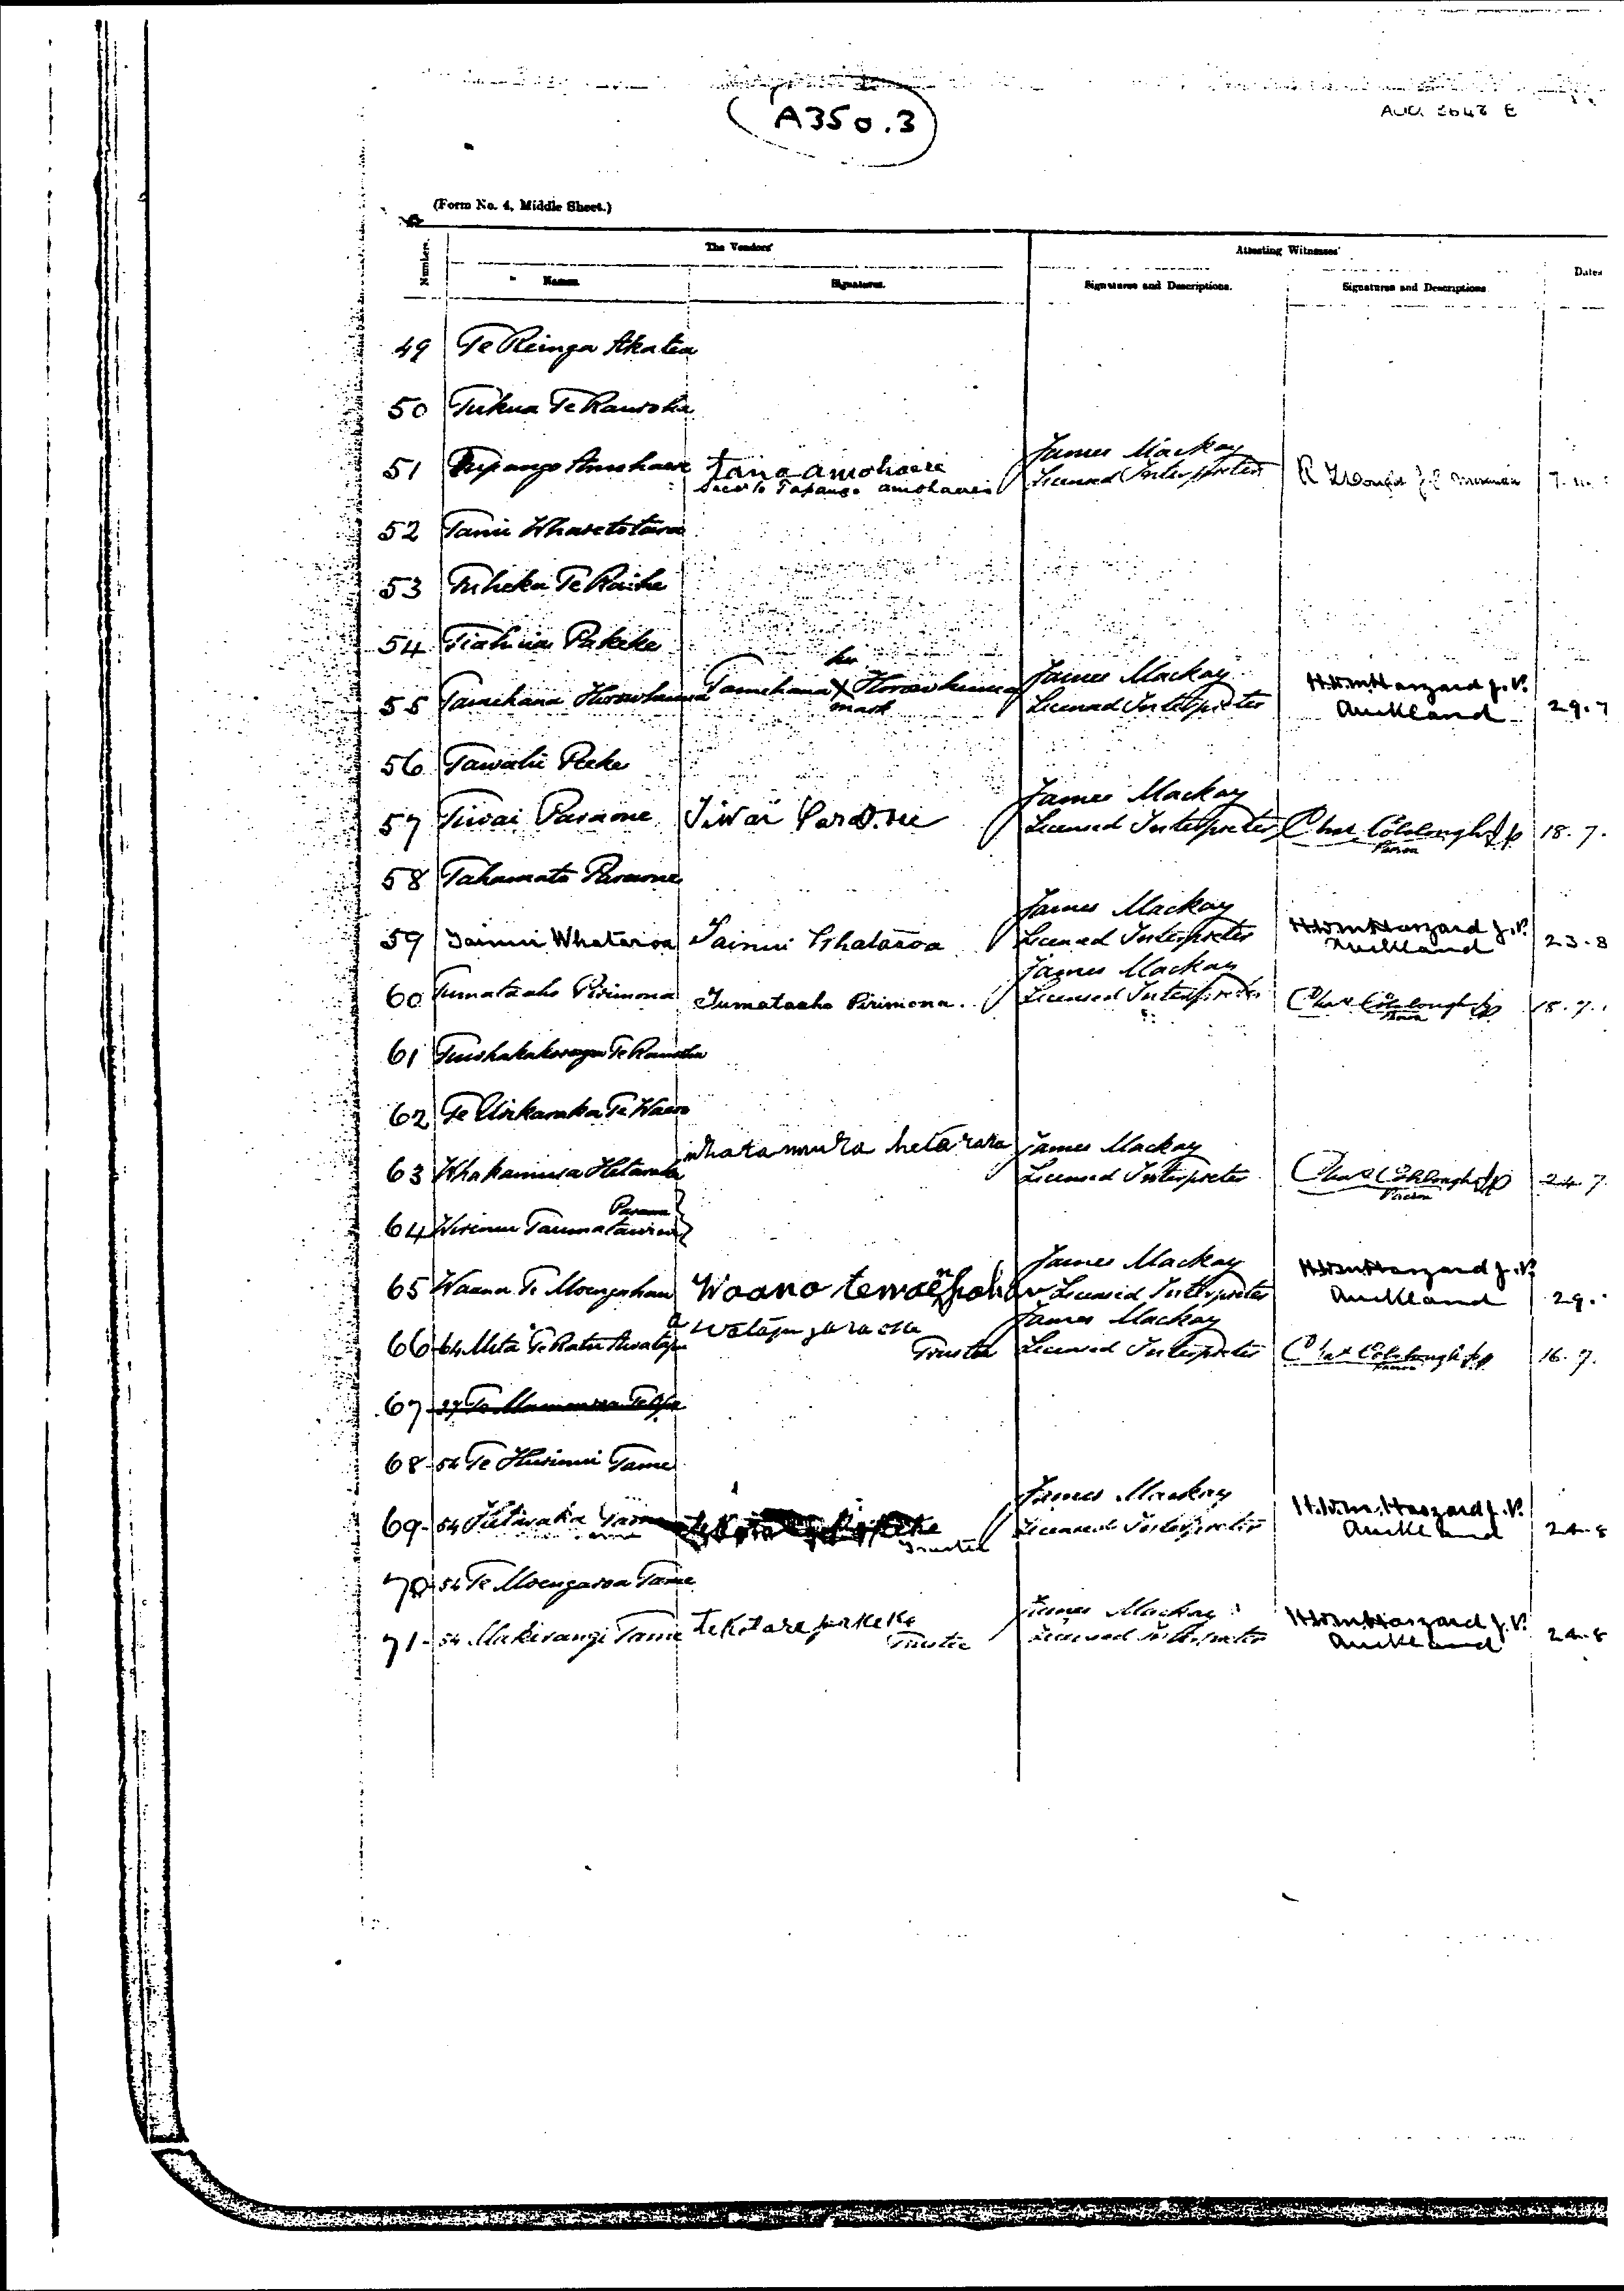 A350.3
AUC 2643 E
(Form No. 4, Middle Sheet.)
Number.
The Vendors'
Attesting Witnesses'
Names.
Signatures.
Signatures and Descriptions.
Signatures and Descriptions
Dates
49 Te Reinga Akatea
50 Tukua Te Rauroha
51 Tupango Amohaere
tana amohaere
Succr to Tapango amohaere
James Mackay
Licensed Interpreter
52 Tanui Wharetotara
53 Tuheka Te Raihe
54 Tiahuia Pakeke
55 Tamehana Horowhenua
Tamehana X Horowhenua
his
mark
James Mackay
Licensed Interpreter
H. Wm Haszard J.P.
Auckland
29.7
56 Tawahi Reke
57 Tiwai Paraone
Tiwai Paraone
James Mackay
Licensed Interpreter
Chas Colclough Jp
Paeroa
18.7.
58 Tahamata Paraone
59 Tainui Whataroa
Tainui Whataroa
James Mackay
Licensed Interpreter
H. Wm Haszard J.P.
Auckland
23.8
60 Tumataaho Pirimona
Tumataaho Pirimona.
James Mackay
Licensed Interpreter
Chas Colclough Jp
Paeroa
18.7.
61 Te Rauroha
62 Te Urikaraka Te Waero
63 Whakamura Hetaraka
whakamura hetaraka
James Mackay
Licensed Interpreter
Chas Colclough Jp
Paeroa
24.7
64 Wirimu Taumatawiwi
65 Waana Te
Waana
James Mackay
Licensed Interpreter
H. Wm Haszard J.P.
Auckland
29.
66 64 Mita Te Ratu Awatapu
Trustee
James Mackay
Licensed Interpreter
Chas Colclough Jp
Paeroa
16.7.
67 27 Te
68 54 Te Hurinui Tame
69 54 Tutaraka Tame
Trustee
James Mackay
Licensed Interpreter
H. Wm. Haszard J.P.
Auckland
24.8
70 54 Te Moengaroa Tame
71 54 Makirangi Tame
te Kotare pakeke
Trustee
James Mackay
Licensed Interpreter
H. Wm Haszard J.P.
Auckland
24.8